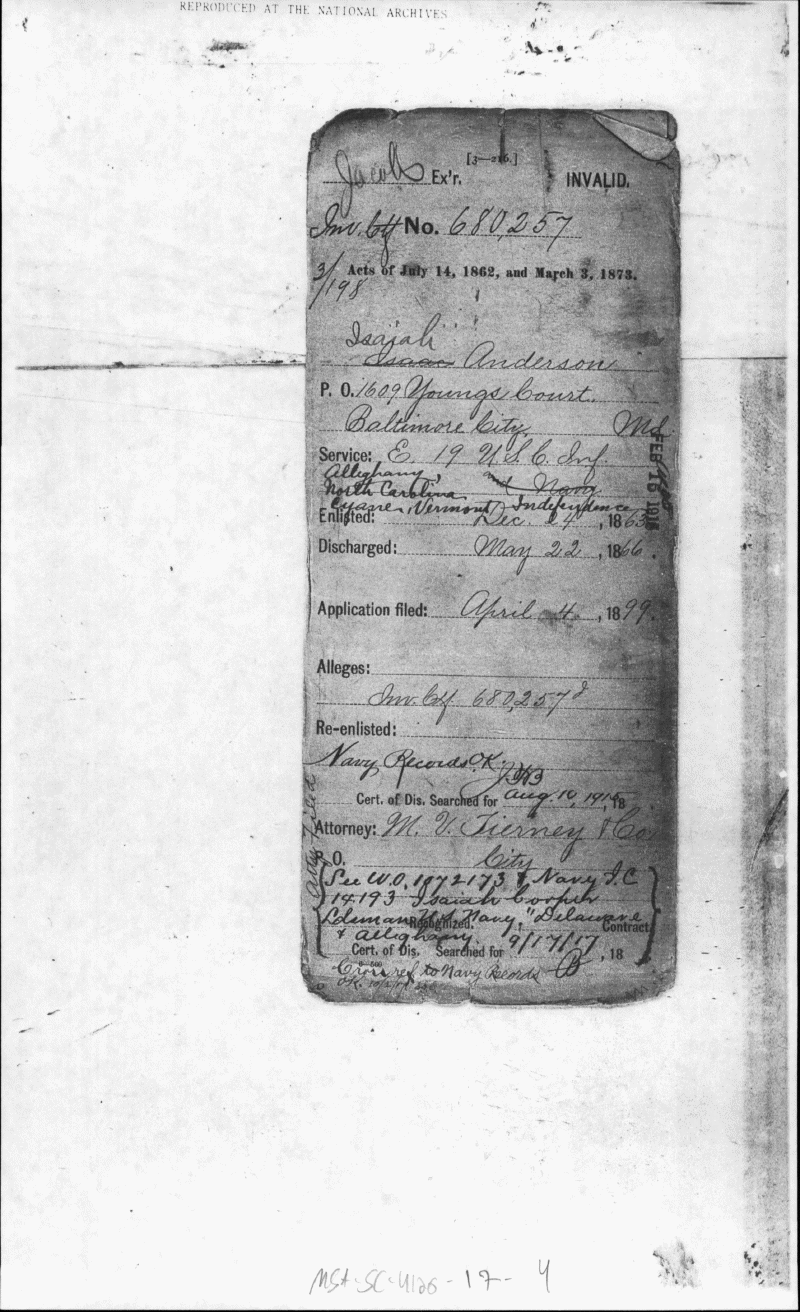 REPRODUCED AT THE NATIONAL ARCHIVES
[3—216.]
Jacobs Ex'r. INVALID.
Inv. Ctf No. 680,257
3/198
Acts of July 14, 1862, and March 3, 1873.
Isaiah
Isaac Anderson
P. O. 1609 Youngs Court.
Baltimore City, Md
Service: E. 19 U.S.C. Inf.
Alleghany, and Navy
North Carolina
Cyane, Vermont, Independence
Enlisted: Dec. 24, 1863
FEB 16 1915
Discharged: May 22, 1866.
Application filed: April 4, 1899.
Alleges:
Inv. Ctf. 680,257
Re-enlisted:
Navy Records O.K.
Cert. of Dis. Searched for Aug. 10, 1915, 18
Atty Filed
Attorney: M. V. Tierney & Co
P. O. City
See W.O. 1072173 & Navy I.C
14193 Isaiah Cooper
Ldsman U.S. Navy, "Delaware
Recognized. Contract
& Alleghany. 9/17/17
Cert. of Dis. Searched for B, 18
Cross ref to Navy Records
OK.
MSA-SC-4126-17-4